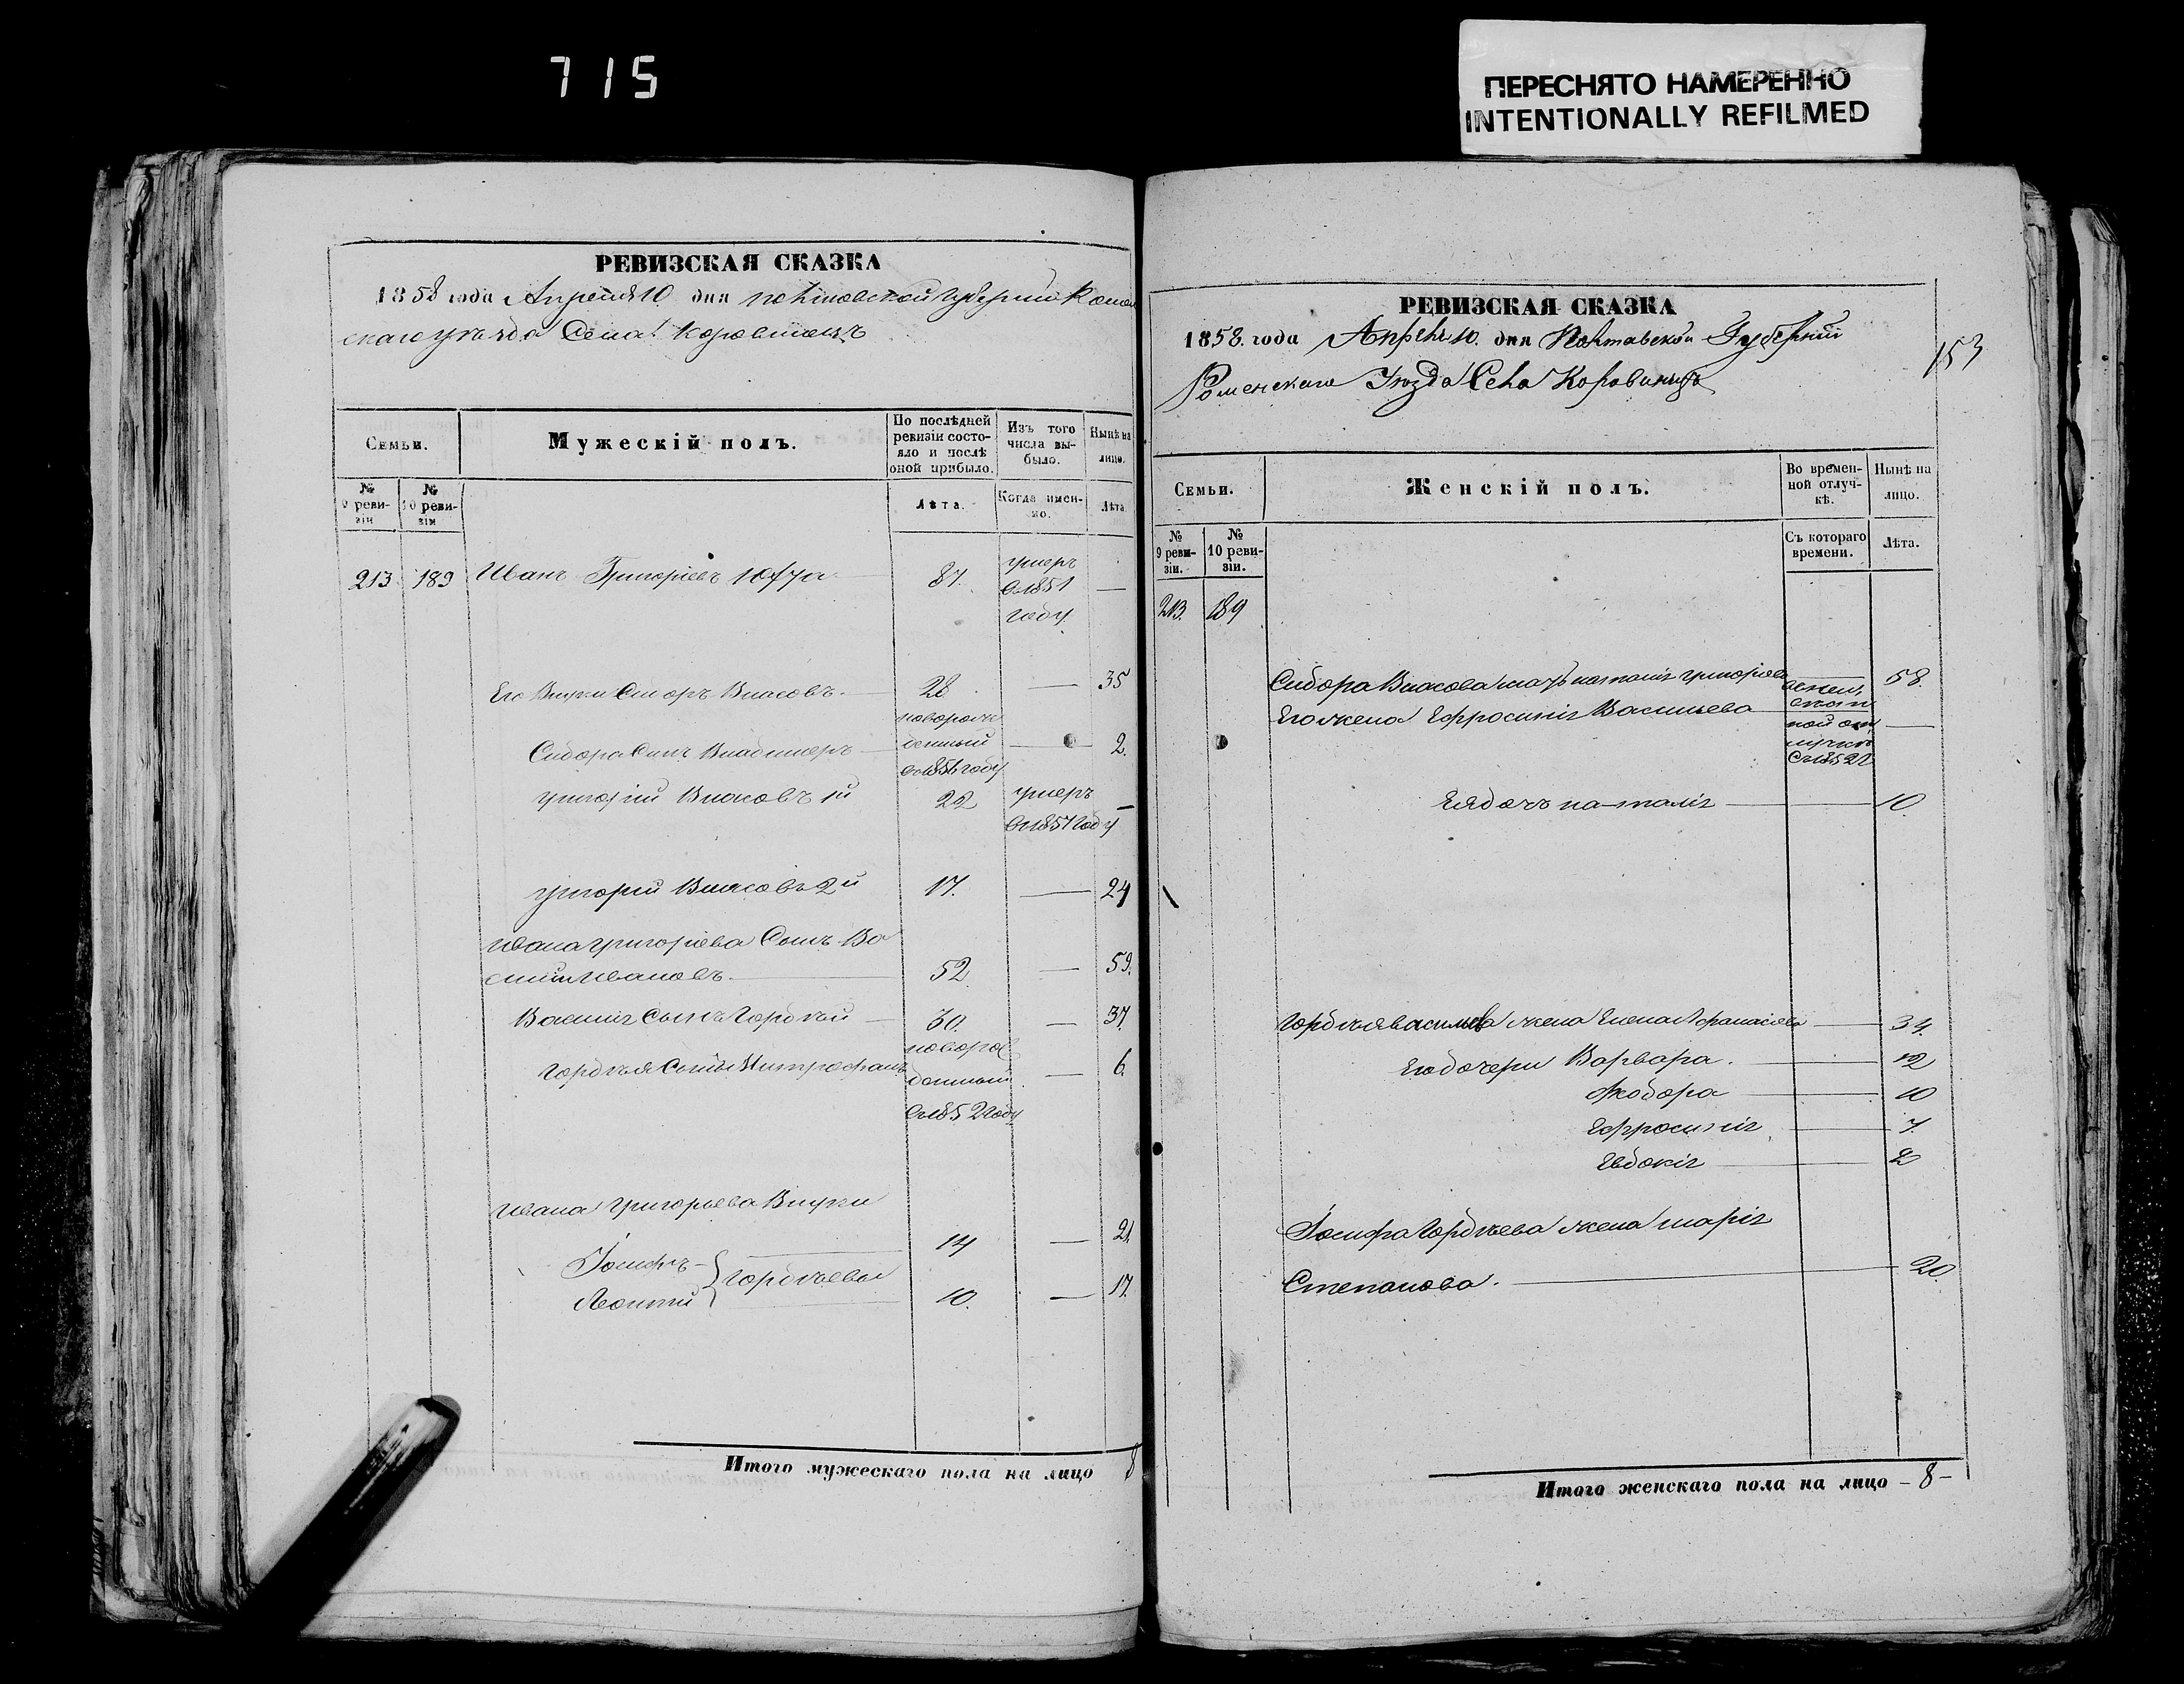 715
ПЕРЕСНЯТО НАМЕРЕННО
INTENTIONALLY REFILMED
РЕВИЗСКАЯ СКАЗКА
1858 года Апреля 10 дня Полтавской Губернии Ромен
скаго уѣзда Села Коровинцъ
Семьи.
Мужескій полъ.
По послѣдней ревизіи состояло и послѣ оной прибыло.
Изъ того числа выбыло.
Нынѣ на лицо.
№ 9 ревизіи
№ 10 ревизіи
Лѣта.
Когда именно.
Лѣта
213 189 Иванъ Григоріевъ 87. умеръ
въ 1851 —
году
Его Внуки Сидоръ Власовъ — 28 — 35
новорож
Сидора Сынъ Владимеръ — денный — 2
въ 1856 году
Григорій Власовъ 1й 22 умеръ —
въ 1857 году
Григорий Власовъ 2й 17. — 24
Ивана Григоріева Сынъ Ва
силий Ивановъ — 52 — 59.
Василия Сынъ Гордѣй — 30. — 37.
новорож
Гордѣя Сынъ Митрофанъ денный — 6.
въ 1852 году
Ивана Григорьева Внуки
Іосифъ — 14 — 21.
Гордѣевы
Леонтий 10. — 17.
Итого мужескаго пола на лицо 8
РЕВИЗСКАЯ СКАЗКА
1858. года Апрѣля 10. дня Полтавской Губерніи
Роменскаго Уѣзда Села Коровинцъ
153
Семьи.
Женскій полъ.
Во временной отлучкѣ.
Нынѣ на лицо.
№ 9 ревизіи.
№ 10 ревизіи.
Съ котораго времени.
Лѣта.
213. 189
Сидора Власова мать Наталія Григоріева — 58.
Его жена Ефросинія Васильева
ной от
лучкѣ
съ 1852 г
Ея дочь Наталія — 10.
Гордѣя Васильева жена Елена Афанасіева — 34.
Его дочери Варвара. — 12
Феодора — 10
Ефросинія — 7.
Евдокія — 2
Іосифа Гордѣева жена Марія
Степанова. — 20.
Итого женскаго пола на лицо — 8 —